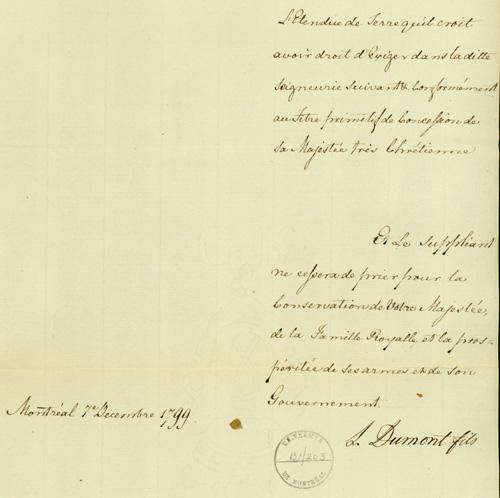 L'Etendue de Terre qu'il croit
avoir droit d'Exiger dans la ditte
Seigneurie suivant & Conformément
au Titre primitif de Concession de
sa Majestée très Chrétienne
Et Le Suppliant
ne cessera de prier pour la
Conservation de Votre Majestée,
de la Famille Royalle, et la pros=
péritée de ses armes et de son
Gouvernement.
Montréal 7e Decembre 1799.
L. Dumont fils
UNIVERSITÉ
DE MONTRÉAL